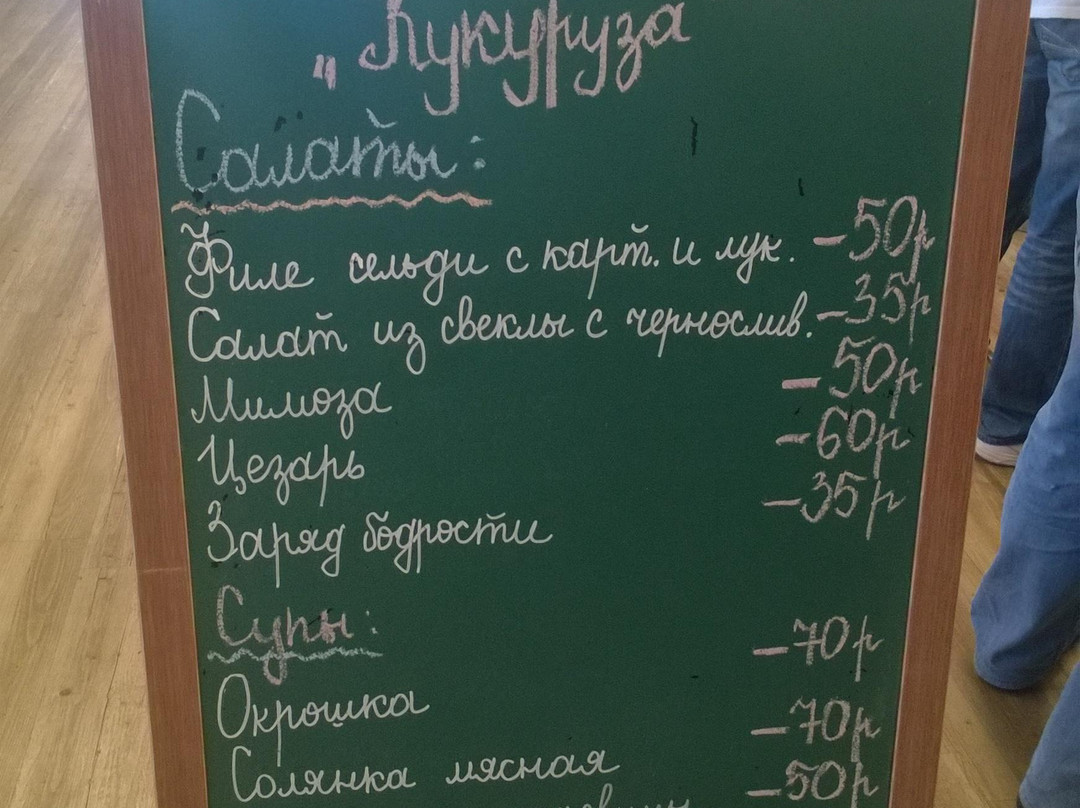 „Кукуруза
Салаты:
Филе сельди с карт. и лук. -50р
Салат из свеклы с чернослив. -35р
Мимоза -50р
Цезарь -60р
Заряд бодрости -35р
Супы:
Окрошка -70р
Солянка мясная -70р
-50р